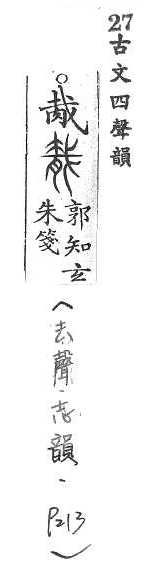 27 古文四聲韻
郭知玄
朱箋
(去聲·志韻·P213)